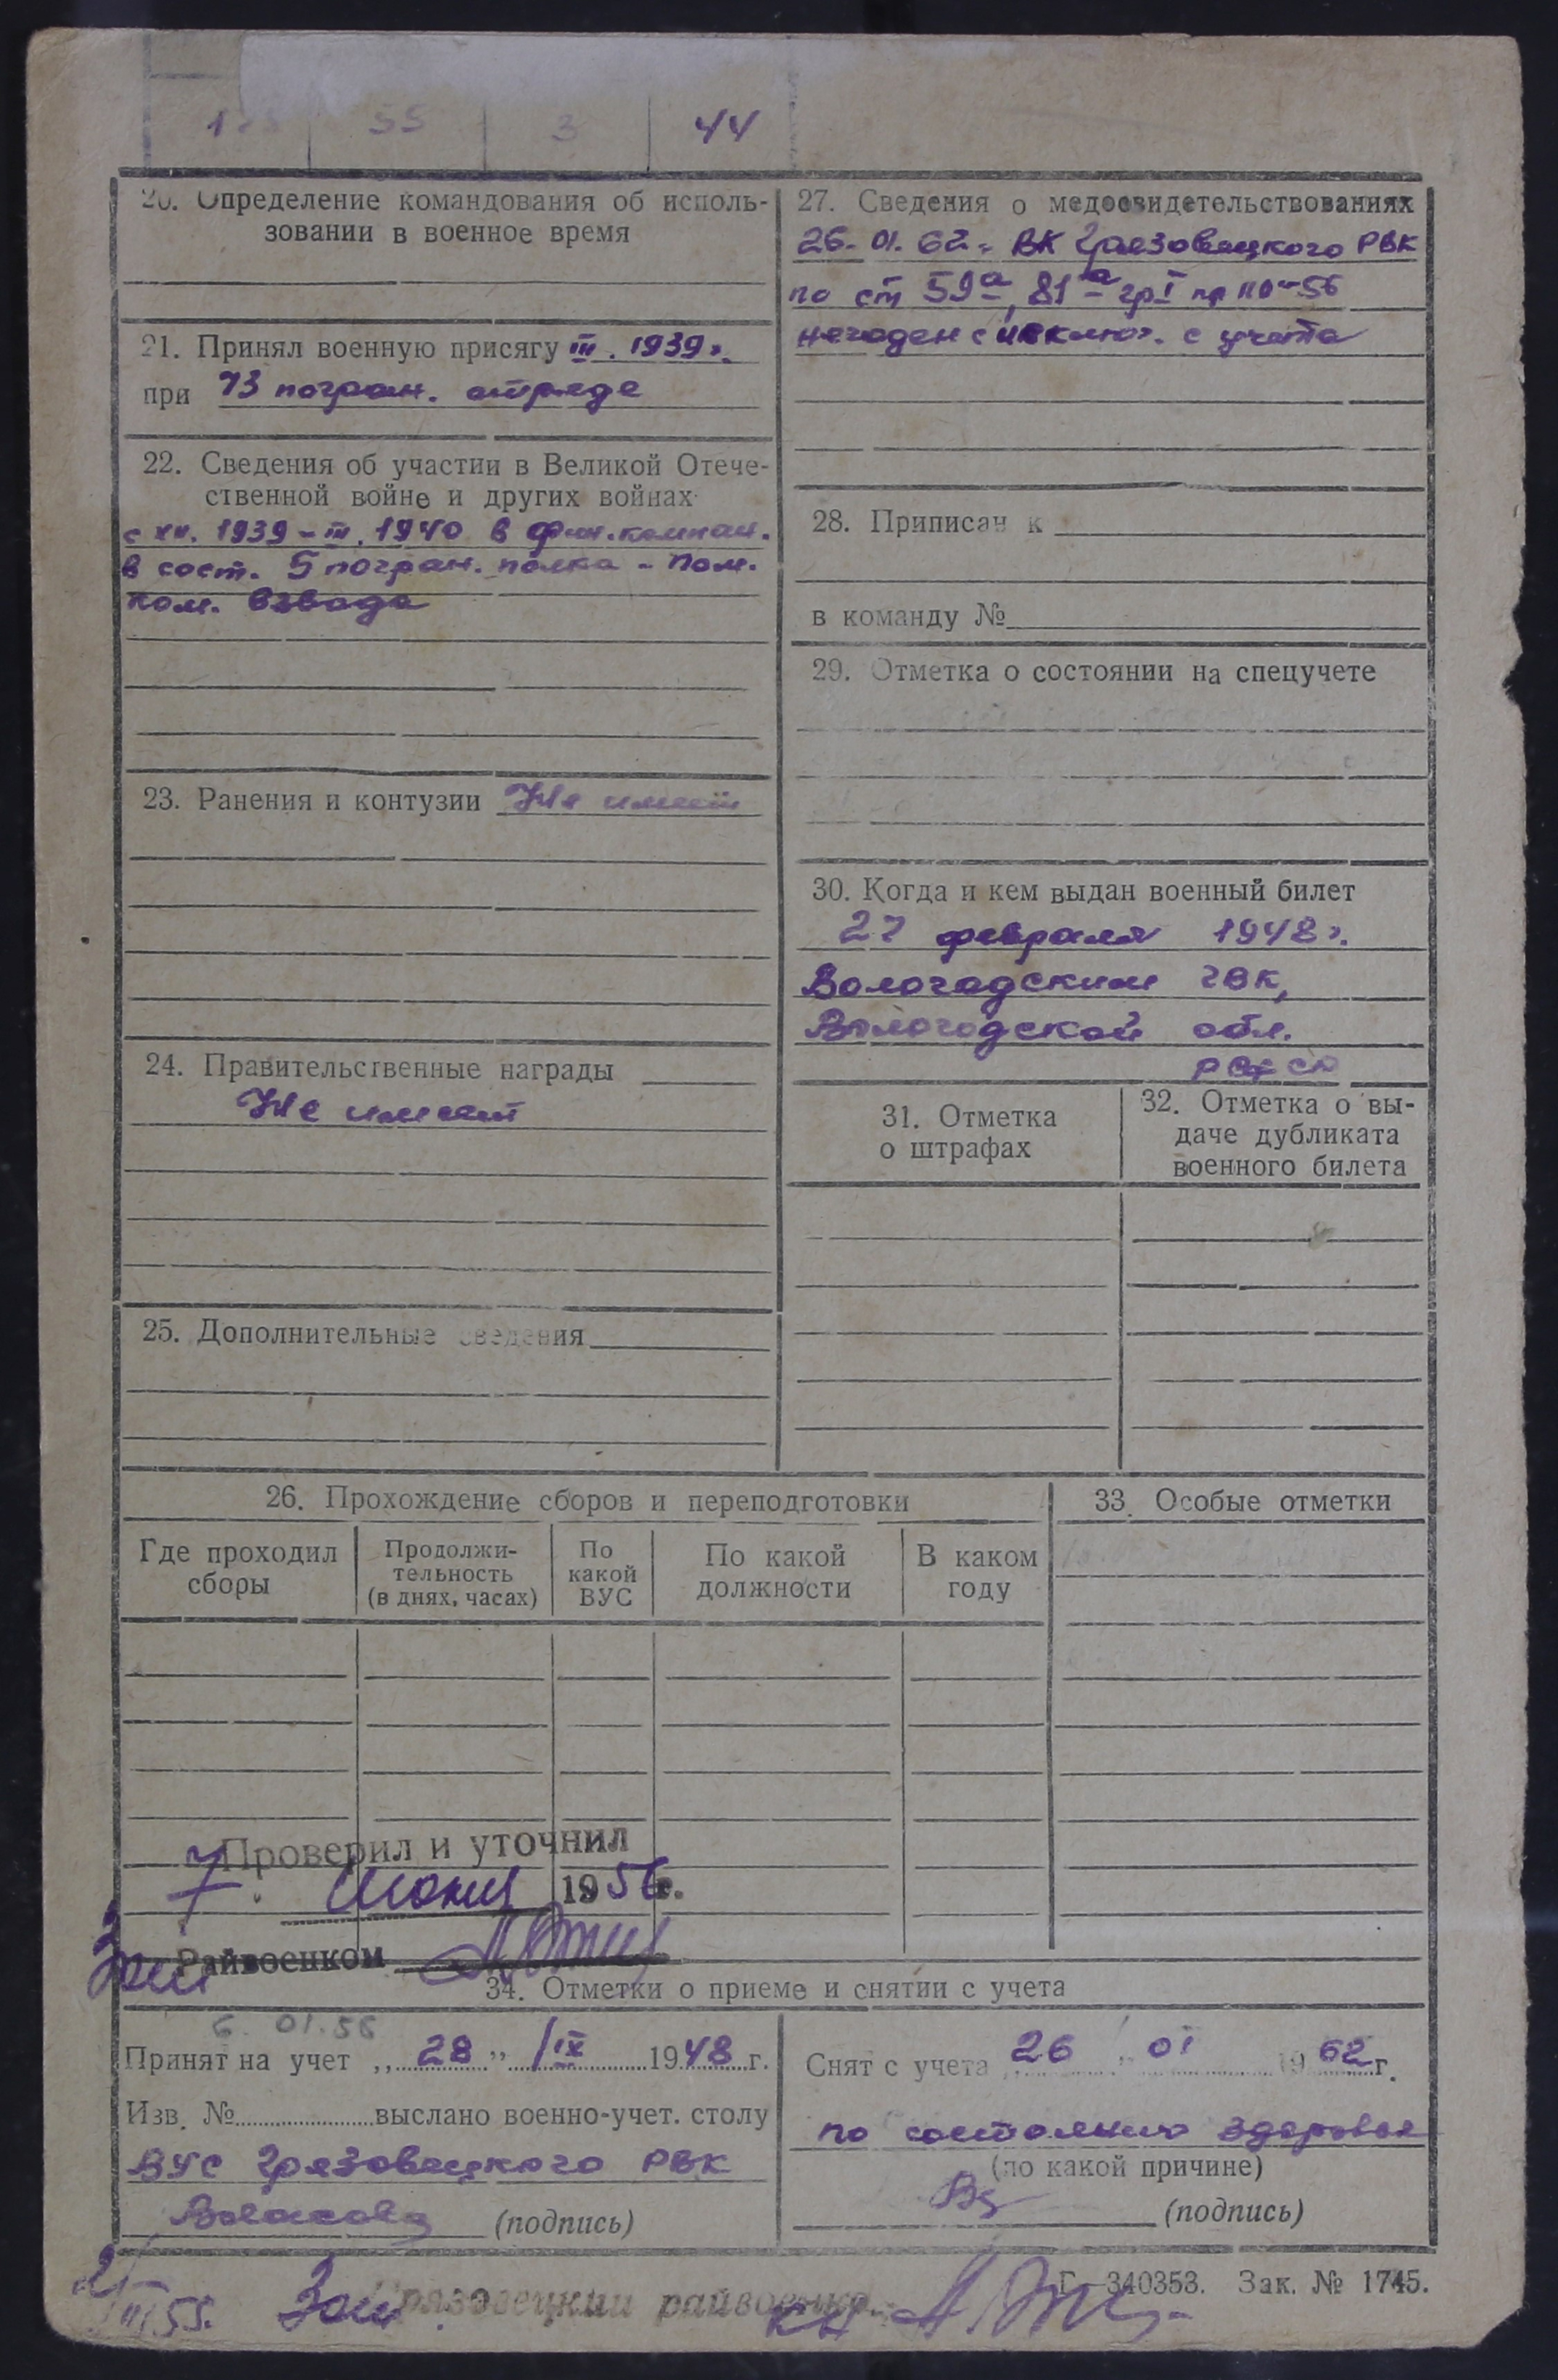 55 3 44
20. Определение командования об исполь-
зовании в военное время
21. Принял военную присягу III. 1939г.
при 73 погран. отряде
22. Сведения об участии в Великой Отече-
ственной войне и других войнах
с XII. 1939 - III. 1940 в фин. кампан.
в сост. 5 погран. полка - Пом.
ком. взвода
23. Ранения и контузии Не имеет
24. Правительственные награды
Не имеет
25. Дополнительные сведения
27. Сведения о медосвидетельствованиях
26. 01. 62г. ВК Грязовецкого РВК
по ст 59а, 81а гр I пр 110-56
негоден с исключ. с учета
28. Приписан к
в команду №
29. Отметка о состоянии на спецучете
30. Когда и кем выдан военный билет
27 февраля 1948г.
Вологодским ГВК,
Вологодской обл.
РСФСР
31. Отметка
о штрафах
32. Отметка о вы-
даче дубликата
военного билета
26. Прохождение сборов и переподготовки
Где проходил
сборы
Продолжи-
тельность
(в днях, часах)
По
какой
ВУС
По какой
должности
В каком
году
33. Особые отметки
Проверил и уточнил
7. июня 1956г.
Зам Райвоенком
34. Отметки о приеме и снятии с учета
6. 01. 56
Принят на учет „28" IX 1948 г.
Изв. № выслано военно-учет. столу
ВУС Грязовецкого РВК
(подпись)
Снят с учета „26" 01 1962г.
по состоянию здоровья
(по какой причине)
(подпись)
Г—340353. Зак. № 1745.
55. Зам. Грязовецкий райвоенком